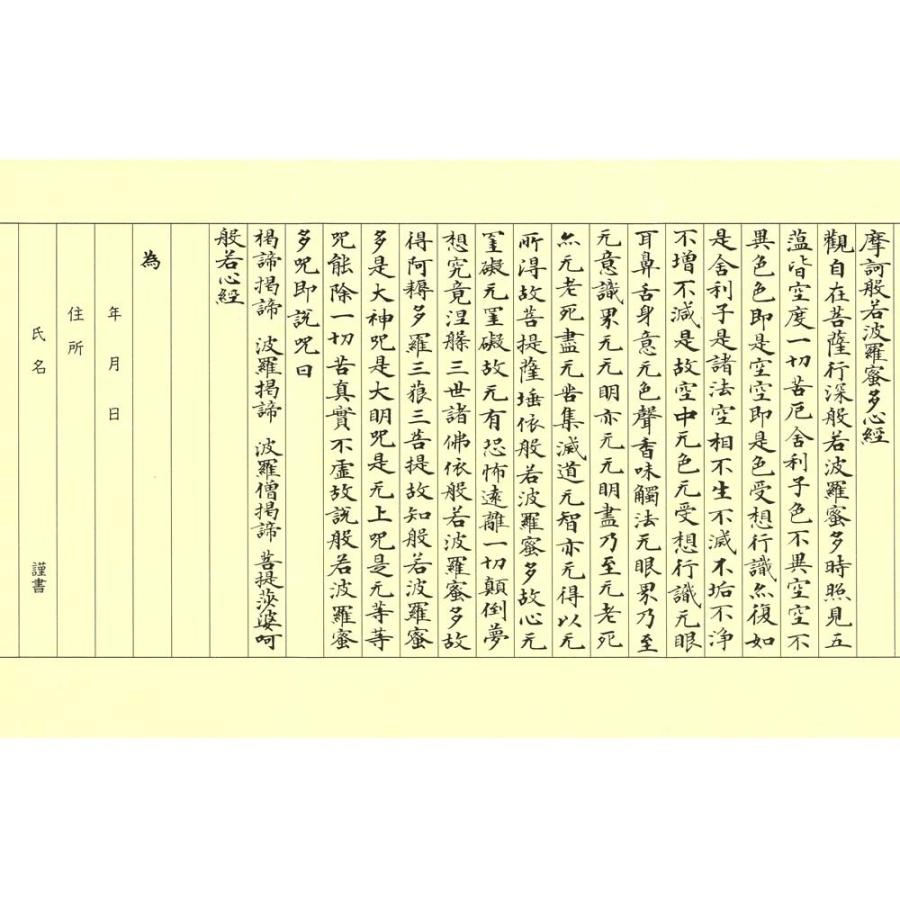 摩訶般若波羅蜜多心経
觀自在菩薩行深般若波羅蜜多時照見五
蕰皆空度一切苦厄舍利子色不異空空不
異色色即是空空即是色受想行識亦復如
是舍利子是諸法空相不生不滅不垢不浄
不増不減是故空中元色元受想行識元眼
耳鼻舌身意元色聲香味觸法元眼界乃至
元意識界元元明亦元元明盡乃至元老死
亦元老死盡元苦集滅道元智亦元得以元
所得故菩提薩埵依般若波羅蜜多故心元
罣礙元罣礙故元有恐怖遠離一切顛倒夢
想究竟涅槃三世諸佛依般若波羅蜜多故
得阿耨多羅三藐三菩提故知般若波羅蜜
多是大神咒是大明咒是元上咒是元等等
咒能除一切苦真實不虚故說般若波羅蜜
多咒即說咒曰
揭諦揭諦 波羅揭諦 波羅僧揭諦 菩提莎婆呵
般若心経
為
年 月 日
住 所
氏 名 謹書